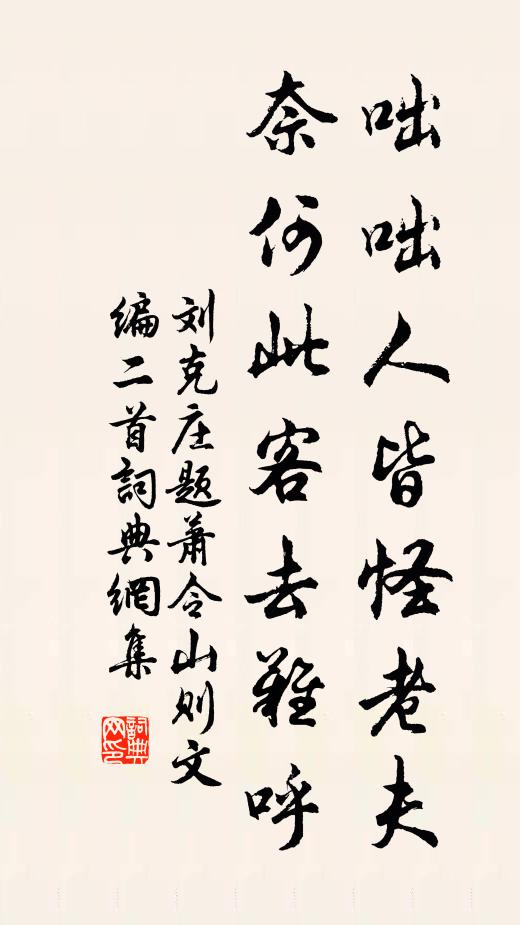 咄咄人皆怪老夫
奈何此客去難呼
刘克庄题萧令山则文
编二首詞典網集
詞典网印